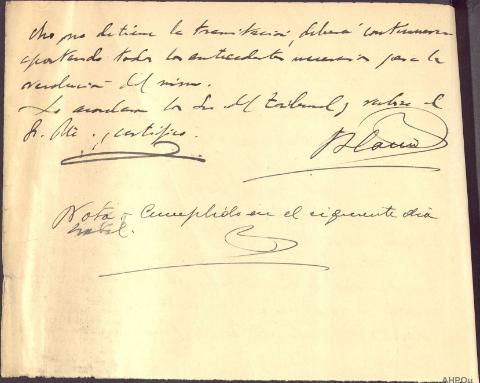 cho no detiene la tramitación, deberá continuarse
aportando todos los antecedentes necesarios para la
resolución del mismo.
Lo acordaron los Sres del Tribunal, y rubrica el
Sr. , certifico.
Blanco
Nota = Cumplido en el siguiente dia
hábil.
AHPOu